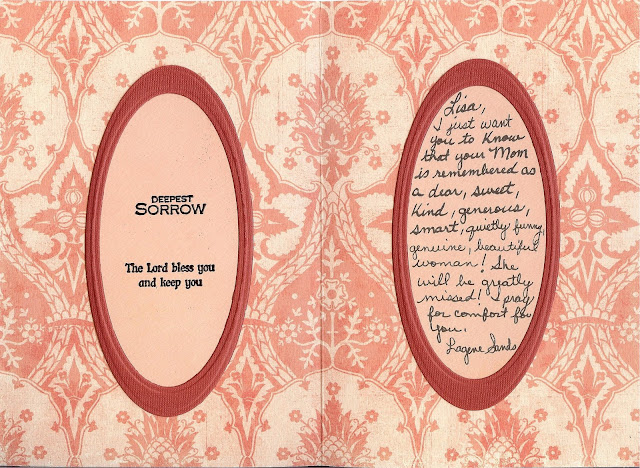 DEEPEST
SORROW
The Lord bless you
and keep you
Lisa,
I just want
you to know
that your Mom
is remembered as
a dear, sweet,
kind, generous,
smart, quietly funny,
genuine, beautiful
woman! She
will be greatly
missed! I pray
for comfort for
you.
Lagene Sands